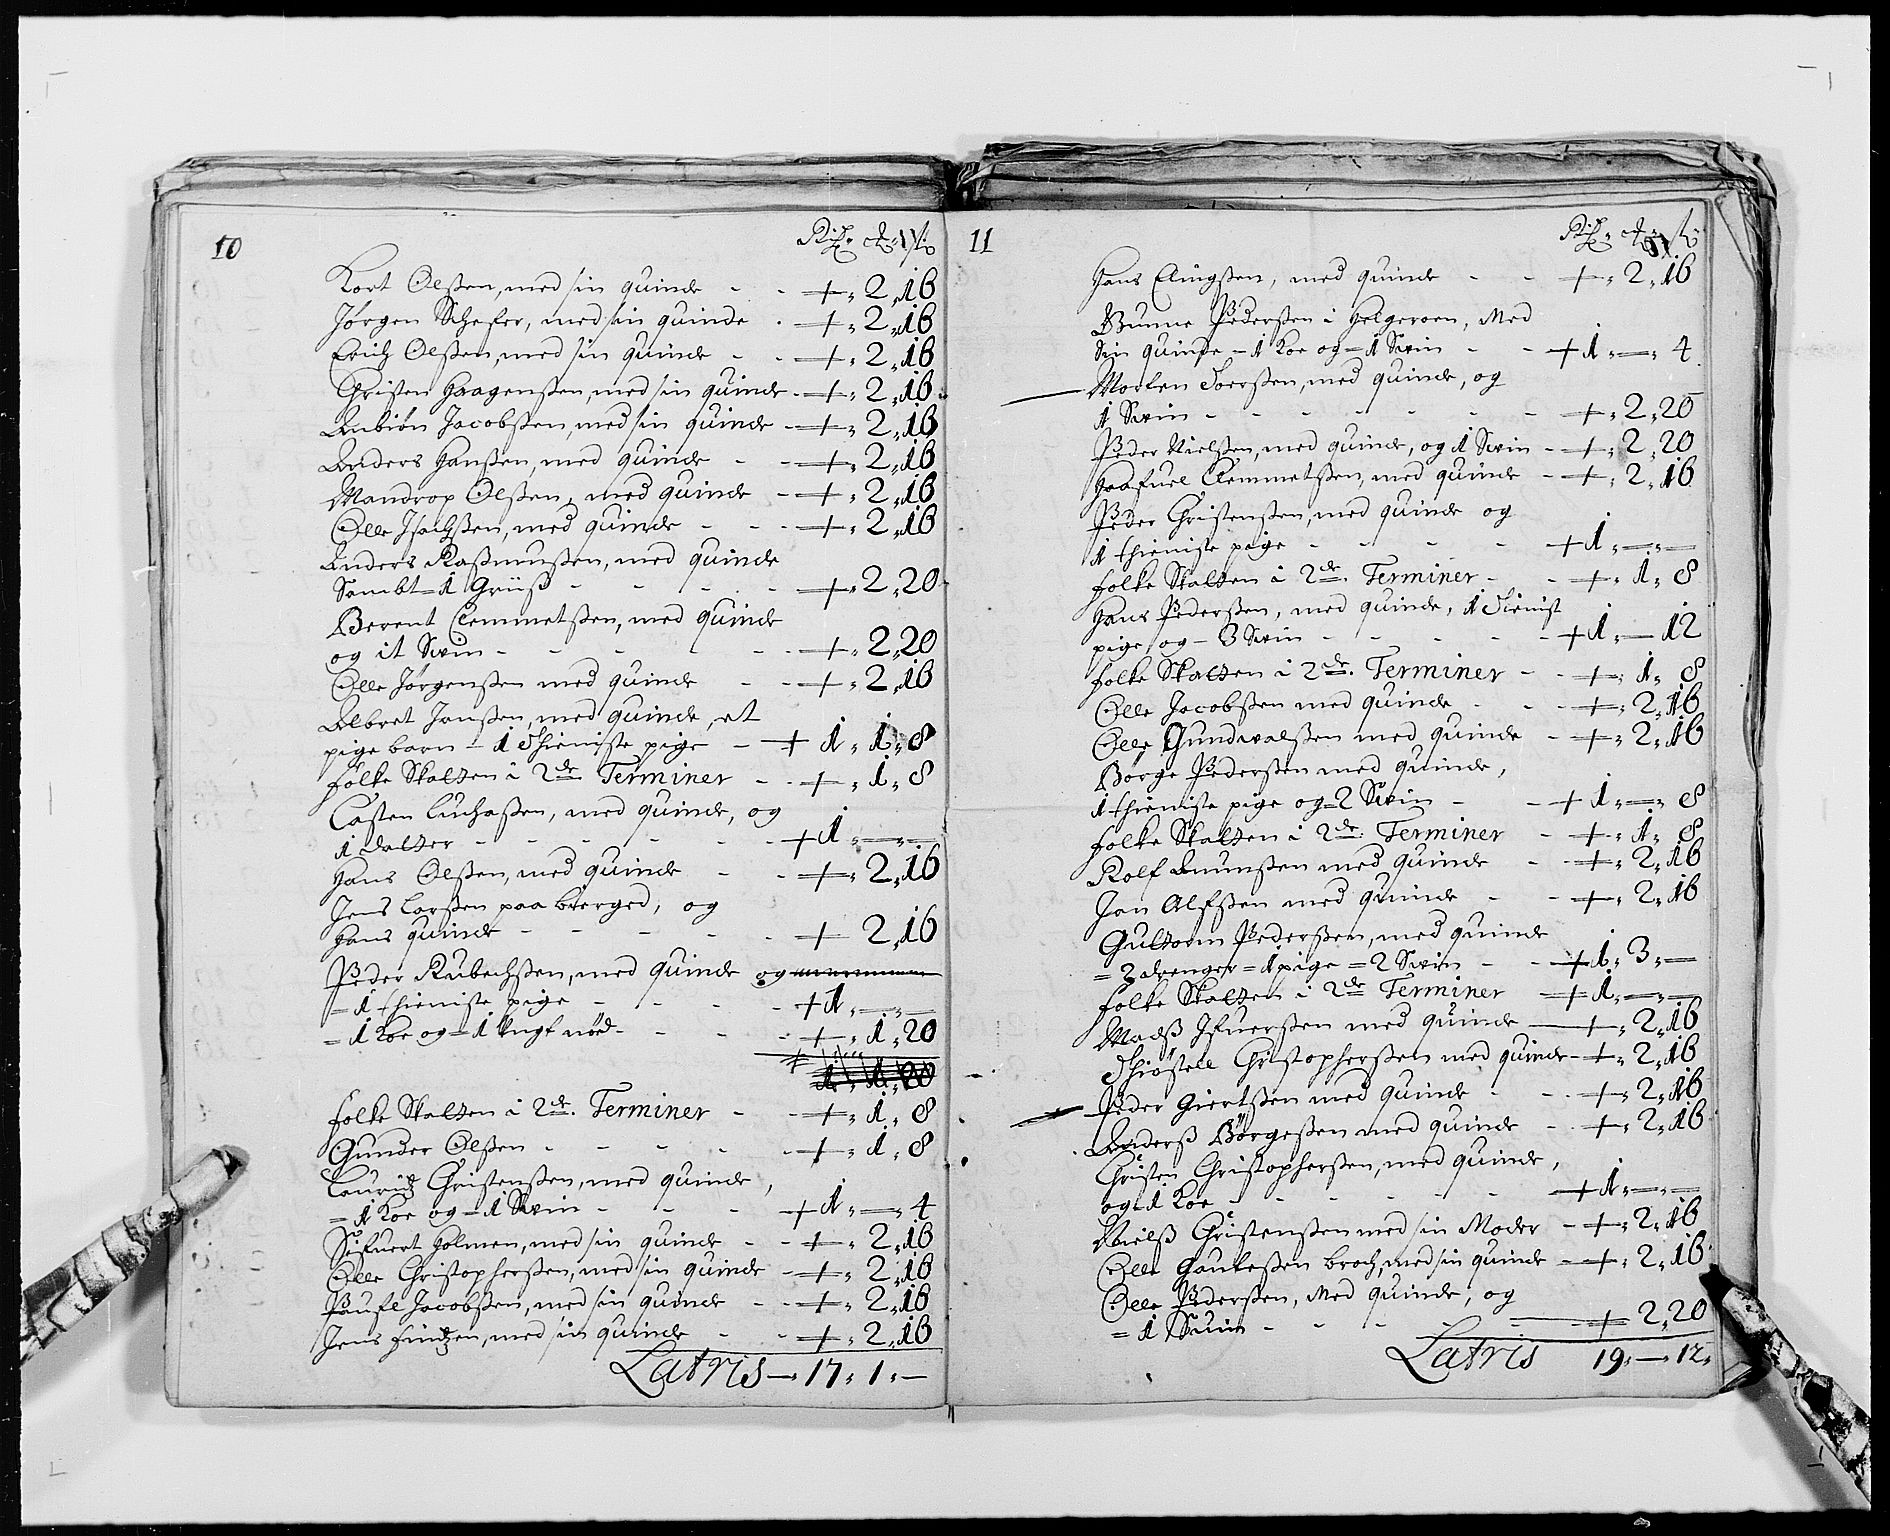 10
Kort Olßen, med sin quinde - - + „ 2 „ 16
Jørgen Schefer, med sin quinde - + „ 2 „ 16
Erich Olßen, med sin quinde - - + „ 2 „ 16
Christen Haagenßen, med sin quinde - + „ 2 „ 16
Anbiön Jacobßen, med sin quinde - + „ 2 „ 16
Anders Hanßen, med quinde - - + „ 2 „ 16
Mandrop Olßen, med quinde - + „ 2 „ 16
Olle Isachßen, med quinde - - - + „ 2 „ 16
Anders Raßmusßen, med quinde
Sambt = 1 Griiß - - - - - + „ 2 „ 20
Berent Clemmetßen, med quinde
og it Svin - - - - - - + „ 2 „ 20
Olle Jørgenßen med quinde - - + „ 2 „ 16
Albret Janßen, med quinde, et
pige barn - 1 Thieniste pige - + 1 „ 1 „ 8
folke Skatten i 2de Terminer - - + „ 1 „ 8
Casten Luchaßen, med quinde, og
1 datter - - - - - - + 1 „ — „ —
Hans Olßen, med quinde - - + „ 2 „ 16
Jens Larßen paa bierged, og
Hans quinde - - - - - + 2 „ 16
Peder Rubechßen, med quinde og
= 1 thieniste pige - - - - + 1 „ — „ —
= 1 Koe og = 1 Ungt nød - - - + „ 1 „ 20
folke Skatten i 2de. Terminer - - + „ 1 „ 8
Gunder Olßen - - - - - + „ 1 „ 8
Lauritz Christenßen, med quinde,
= 1 Koe og = 1 Svin - - - + 1 „ — „ 4
Sifuert Holmen, med sin quinde - - + „ 2 „ 16
Olle Christopherßen, med sin quinde - + „ 2 „ 16
Poufl Jacobßen, med sin quinde - - + „ 2 „ 16
Jens fintzen, med sin quinde - - + „ 2 „ 16
Latris — 17 „ 1 „ —
11
Hans Elingßen, med quinde - - + „ 2 „ 16
Gunne Pederßen i Helgeroen, Med
Sin quinde = 1 Koe og = 1 Svin - - + 1 „ — „ 4
Morten Toerßen, med quinde, og
1 Svin - - - - - - - + „ 2 „ 20
Peder Nielßen, med quinde, og 1 Svin - + „ 2 „ 20
Haafuel Clemmetßen, med quinde - + „ 2 „ 16
Peder Christenßen, med quinde og
1 thieniste pige - - - - - + 1 „ — „ —
folke Skatten i 2de. Terminer - - + „ 1 „ 8
Hans Pederßen, med quinde, 1 Tienist
pige og - 3 Svin - - - - - + 1 „ — 12
folke Skatten i 2de. Terminer - - + „ 1 „ 8
Olle Jacobßen med quinde - - - + „ 2 „ 16
Olle Gundvalßen med quinde - + „ 2 „ 16
Børge Pederßen med quinde,
1 thieniste pige og = 2 Svin - - + 1 „ — „ 8
folke Skatten i 2de. Terminer - + „ 1 „ 8
Rolf Amunßen med quinde - - + „ 2 „ 16
Jan Olfßen med quinde - - + „ 2 „ 16
Guttorm Pederßen, med quinde
= 2 drenger = 1 pige = 2 Svin - - + 1 „ 3 „ —
folke Skatten i 2de Terminer - + 1 „ — „ —
Madß Ifuerßen med quinde — + „ 2 „ 16
Thiöstell Christopherßen med quinde - + „ 2 „ 16
Peder Giertßen med quinde - - + „ 2 „ 16
Anderß Børgeßen med quinde - - + „ 2 „ 16
Christen Christopherßen, med quinde,
og 1 Koe - - - - - - + 1 „ — „ —
Nielß Christenßen med sin Moder - + „ 2 „ 16
Olle Gauteßen broch, med sin quinde - + „ 2 „ 16
Olle Pederßen, Med quinde, og
= 1 Suin - - - - - + 2 „ 20
Latris 19 „ — „ 12 „